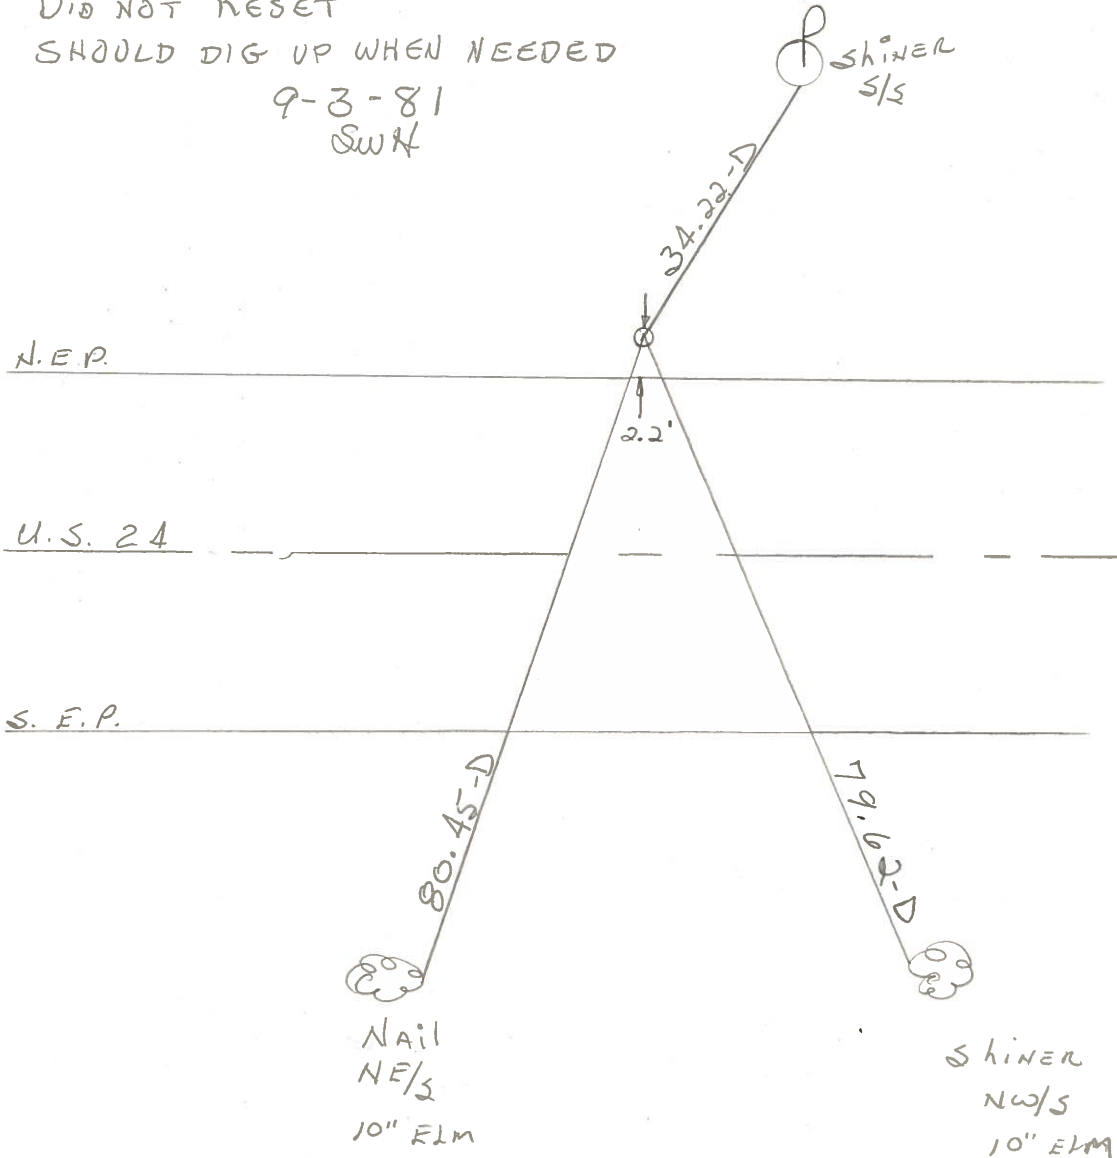 DID NOT RESET
SHOULD DIG UP WHEN NEEDED
9-3-81
SWH
P
ShiNER
S/S
34.22-D
N.E.P.
2.2'
U.S. 24
S. E.P.
80.45-D
79.62-D
NAil
NE/S
10" ELM
ShiNER
NW/S
10" ELM